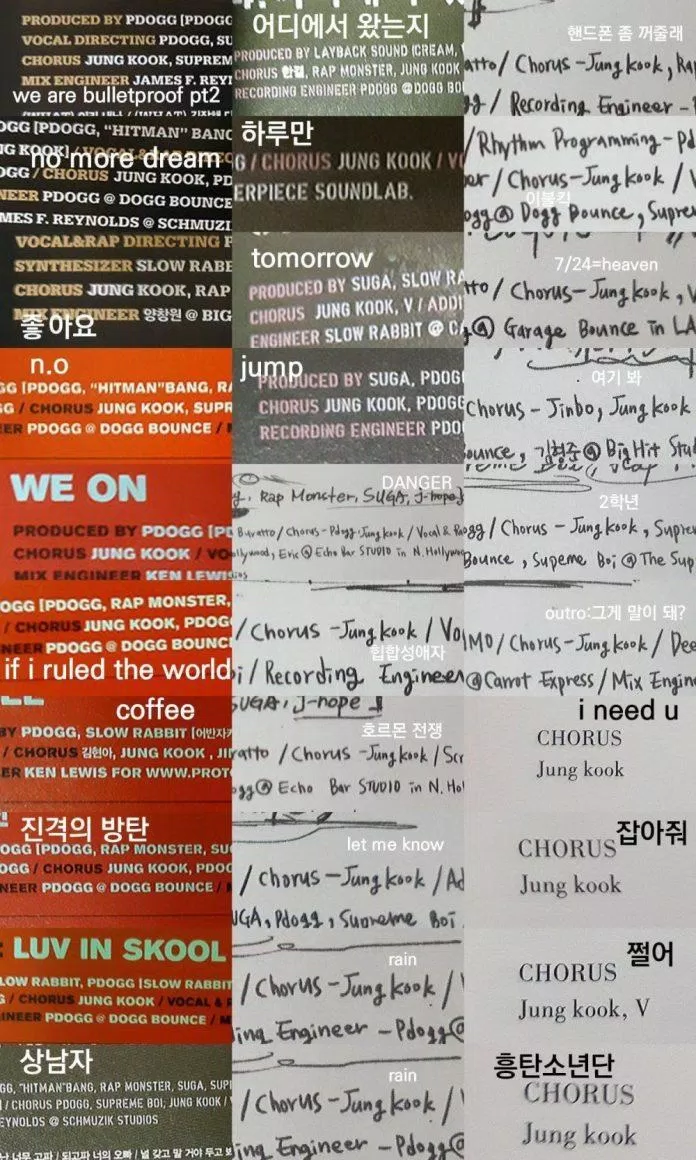 PRODUCED BY PDOGG [PDOGG
VOCAL DIRECTING PDOGG, SU
CHORUS JUNG KOOK, SUPREM
MIX ENGINEER JAMES F. REY
we are bulletproof pt2
OGG [PDOGG, "HITMAN" BANG
no more dream
OGG / CHORUS JUNG KOOK, PD
NEER PDOGG @ DOGG BOUNCE
MES F. REYNOLDS @ SCHMUZI
VOCAL&RAP DIRECTING P
SYNTHESIZER SLOW RABB
CHORUS JUNG KOOK, RAP
MIX ENGINEER 양창원 @ BIG
좋아요
n.o
GG [PDOGG, "HITMAN"BANG, RA
GG / CHORUS JUNG KOOK, SUPR
EER PDOGG @ DOGG BOUNCE / M
WE ON
PRODUCED BY PDOGG [PD
CHORUS JUNG KOOK / VO
MIX ENGINEER KEN LEWIS
OGG [PDOGG, RAP MONSTER,
/ CHORUS JUNG KOOK, PDOG
NEER PDOGG @ DOGG BOUNC
if i ruled the world
coffee
BY PDOGG, SLOW RABBIT [어반자카
/ CHORUS 김현아, JUNG KOOK , JI
ER KEN LEWIS FOR WWW.PROT
진격의 방탄
OGG [PDOGG, RAP MONSTER, SU
OGG / CHORUS JUNG KOOK, PDO
NEER PDOGG @ DOGG BOUNCE /
: LUV IN SKOOL
LOW RABBIT, PDOGG [SLOW RABBIT
G / CHORUS JUNG KOOK / VOCAL & R
INEER PDOGG @ DOGG BOUNCE / M
상남자
GG, "HITMAN"BANG, RAP MONSTER, SUGA, SUPR
] / CHORUS PDOGG, SUPREME BOI, JUNG KOOK /
EYNOLDS @ SCHMUZIK STUDIOS
난 너무 고파 / 되고파 너의 오빠 / 널 갖고 말 거야 두고 보
어디에서 왔는지
PRODUCED BY LAYBACK SOUND (CREAM,
CHORUS 한결, RAP MONSTER, JUNG KOOK
RECORDING ENGINEER PDOGG @DOGG BO
하루만
G / CHORUS JUNG KOOK / VO
ERPIECE SOUNDLAB.
tomorrow
PRODUCED BY SUGA, SLOW RA
CHORUS JUNG KOOK, V / ADDI
ENGINEER SLOW RABBIT @ CA
jump
PRODUCED BY SUGA, PDOGG
CHORUS JUNG KOOK, PDOGG
RECORDING ENGINEER PDO
DANGER
g, Rap Monster, SUGA, j-hope
Buratto / Chorus - Pdogg Jungkook / Vocal & Ra
ollywood, Eric @ Echo Bar STUDIO in N. Hollywoo
/ Chorus - Jungkook / Vo
힙합성애자
i / Recording Engineer
SUGA, j-hope
호르몬 전쟁
ratto / Chorus - Jungkook / Scr
ogg @ Echo Bar STUDIO in N. Hol
let me know
/ Chorus - Jungkook / Ad
UGA, Pdogg, Supreme Boi
rain
/ Chorus - Jungkook /
ing Engineer - Pdogg@
rain
/ Chorus - Jungkook /
ing Engineer - Pdogg@
핸드폰 좀 꺼줄래
atto / Chorus - Jungkook, Rap
gg / Recording Engineer - P
/ Rhythm Programming - Pd
er / Chorus - Jungkook / V
이불킥
ogg @ Dogg Bounce, Suprem
7/24=heaven
tto / Chorus - Jungkook, V
@ Garage Bounce in LA
여기 봐
Chorus - Jinbo, Jungkook
ounce, 김형준 @ BigHit Stu
2학년
ogg / Chorus - Jungkook, Suprem
Bounce, Supeme Boi @ The Sup
outro:그게 말이 돼?
IMO / Chorus - Jungkook / Dee
@Carrot Express / Mix Engin
i need u
CHORUS
Jung kook
잡아줘
CHORUS
Jung kook
쩔어
CHORUS
Jung kook, V
흥탄소년단
CHORUS
Jung kook